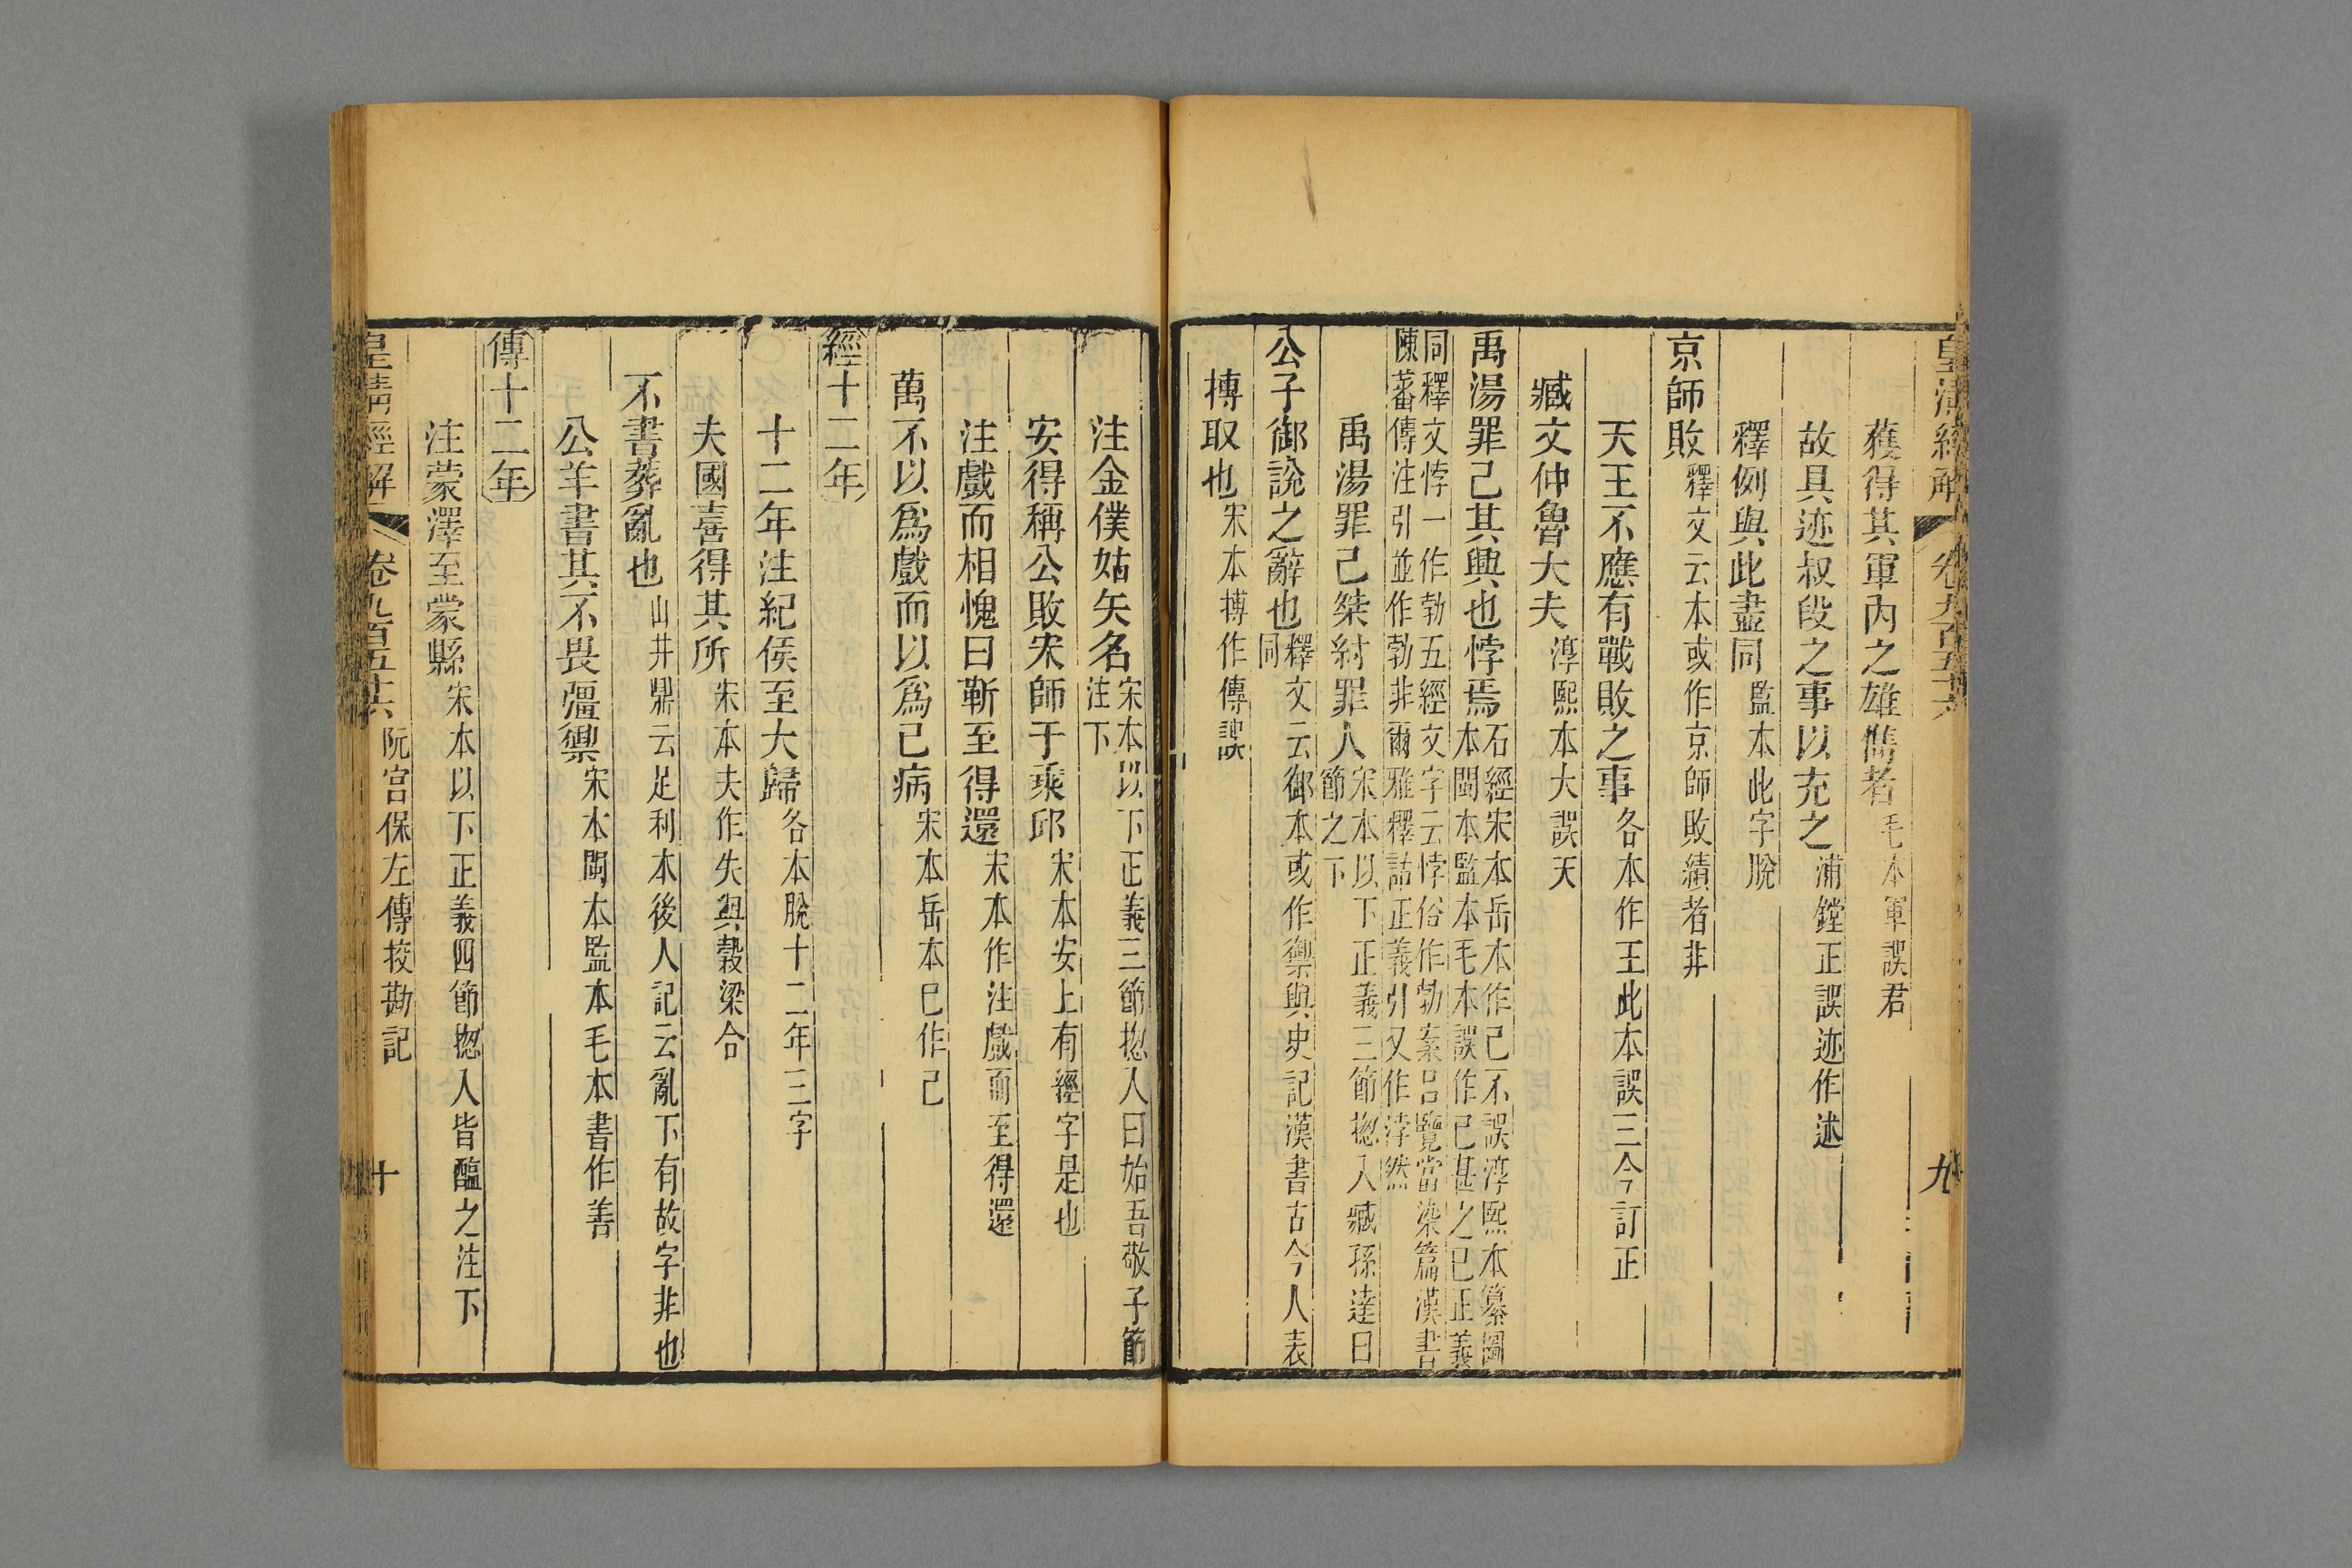 皇清經解 卷九百五十六 九
獲得其軍內之雄儁者毛本軍誤君
故具迹叔段之事以充之浦鏜正誤迹作述
釋例與此盡同監本此字脫
京師敗釋文云本或作京師敗績者非
天王不應有戰敗之事各本作王此本誤三今訂正
臧文仲魯大夫淳熙本大誤天
禹湯罪己其興也悖焉石經宋本岳本作己不誤淳熙本纂圖本閩本監本毛本誤作已甚之已正義
同釋文悖一作勃五經文字云悖俗作勃案呂覽當染篇漢書陳蕃傳注引並作勃非爾雅釋詁正義引又作浡然
禹湯罪己桀紂罪人宋本以下正義三節揔入臧孫達曰節之下
公子御說之辭也釋文云御本或作禦與史記漢書古今人表同
搏取也宋本搏作傳誤
注金僕姑矢名宋本以下正義三節揔入曰始吾敬子節注下
安得稱公敗宋師于乘邱宋本安上有經字是也
注戲而相愧曰靳至得還宋本作注戲而至得還
萬不以爲戲而以爲己病宋本岳本巳作己
經十二年
十二年注紀侯至大歸各本脫十二年三字
夫國喜得其所宋本夫作失與穀梁合
不書葬亂也山井鼎云足利本後人記云亂下有故字非也
公羊書其不畏彊禦宋本閩本監本毛本書作善
傳十二年
注蒙澤至蒙縣宋本以下正義四節揔入皆醢之注下
皇清經解 卷九百五十六 阮宮保左傳挍勘記 十